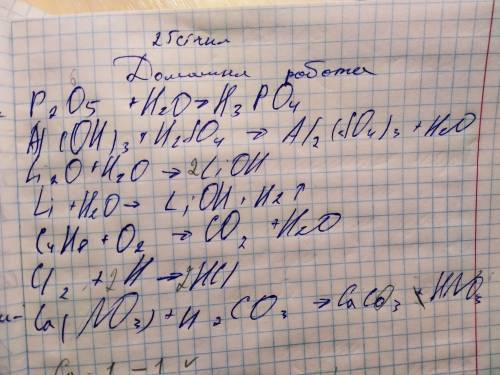 25 січня
Домашня робота
P2O5 + H2O → H3PO4
Al(OH)3 + H2SO4 → Al2(SO4)3 + H2O
Li2O + H2O → 2LiOH
Li + H2O → LiOH + H2↑
C4H8 + O2 → CO2 + H2O
Cl2 + 2H → 2HCl
Ca(NO3) + H2CO3 → CaCO3 + HNO3